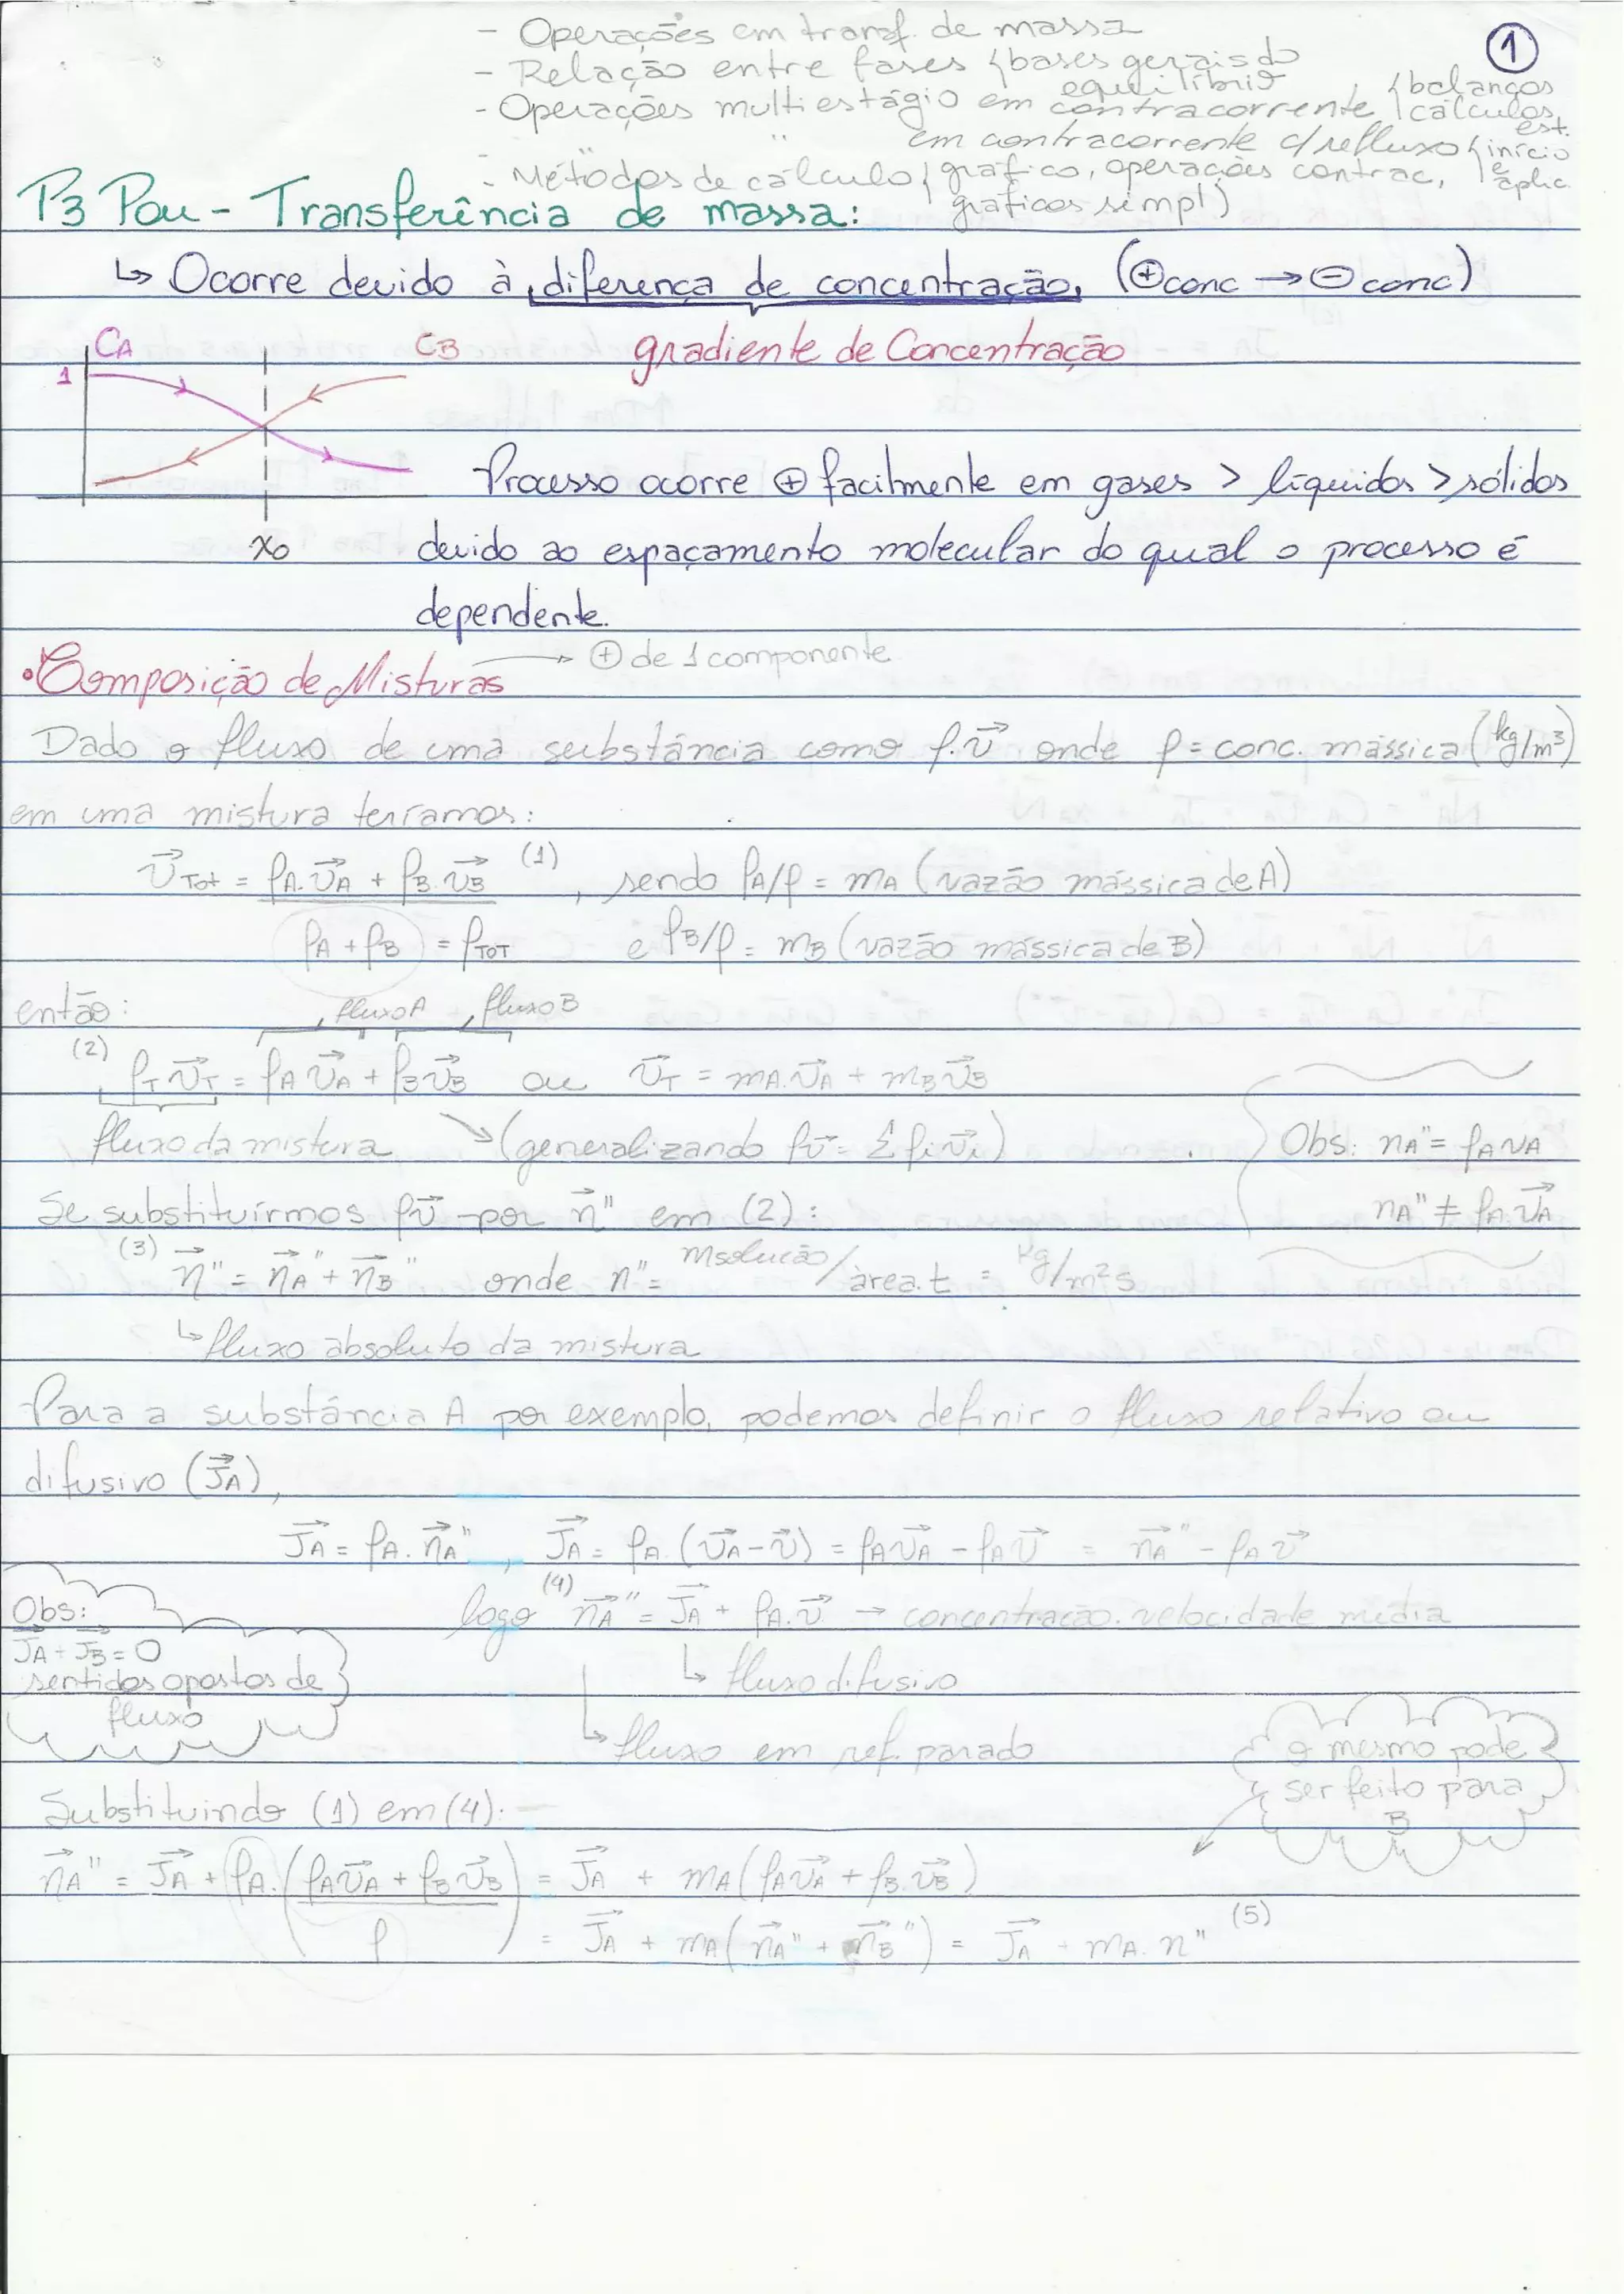 - Operações em transf. de massa
①
- Relação entre fases {bases gerais do equilíbrio
- Operações multiestágio em contracorrente {balanços cálculos est.
- " em contracorrente c/ refluxo {início e aplic.
- Métodos de cálculo {gráfico, operações contrac,
gráficos simpl)
P3 Pou - Transferência de massa:
↳ Ocorre devido à diferença de concentração, (⊕conc → ⊖conc)
gradiente de Concentração
CA
CB
1
x0
Processo ocorre ⊕ facilmente em gases > líquidos > sólidos
devido ao espaçamento molecular do qual o processo é
dependente.
• Composição de Misturas → ⊕ de 1 componente
Dado o fluxo de uma substância como ρ.v⃗ onde ρ = conc. mássica (kg/m³)
em uma mistura teríamos:
v⃗Tot = ρA.v⃗A + ρB.v⃗B (1), sendo ρA/ρ = mA (vazão mássica de A)
ρA + ρB = ρTOT e ρB/ρ = mB (vazão mássica de B)
então: fluxo A, fluxo B
(2) ρT v⃗T = ρA v⃗A + ρB v⃗B ou v⃗T = mA.v⃗A + mB v⃗B
fluxo da mistura ↘ (generalizando ρv⃗ = Σ ρi v⃗i)
Obs: nA" = ρA vA
nA" ≠ ρA.v⃗A
Se substituírmos ρv⃗ por n⃗" em (2):
(3) n⃗" = n⃗A" + n⃗B" onde n" = msolução/área.t = kg/m²s
↳ fluxo absoluto da mistura
Para a substância A por exemplo, podemos definir o fluxo relativo ou
difusivo (J⃗A),
J⃗A = ρA.n⃗A", J⃗A = ρA.(v⃗A - v⃗) = ρA v⃗A - ρA v⃗ = n⃗A" - ρA v⃗
logo (4) n⃗A" = J⃗A + ρA.v⃗ → concentração.velocidade média
↳ fluxo difusivo
↳ fluxo em ref. parado
Obs:
J⃗A + J⃗B = 0
sentidos opostos de
fluxo
o mesmo pode
ser feito para
B
Substituindo (1) em (4):
n⃗A" = J⃗A + ρA.(ρA v⃗A + ρB v⃗B / ρ) = J⃗A + mA(ρA v⃗A + ρB.v⃗B)
= J⃗A + mA(n⃗A" + n⃗B") = J⃗A + mA.n" (5)